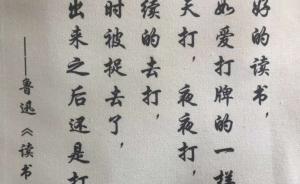 好的读书，
如爱打牌的一样
天打，夜夜打，
续的去打，
时被捉去了，
出来之后还是打
——鲁迅《读书